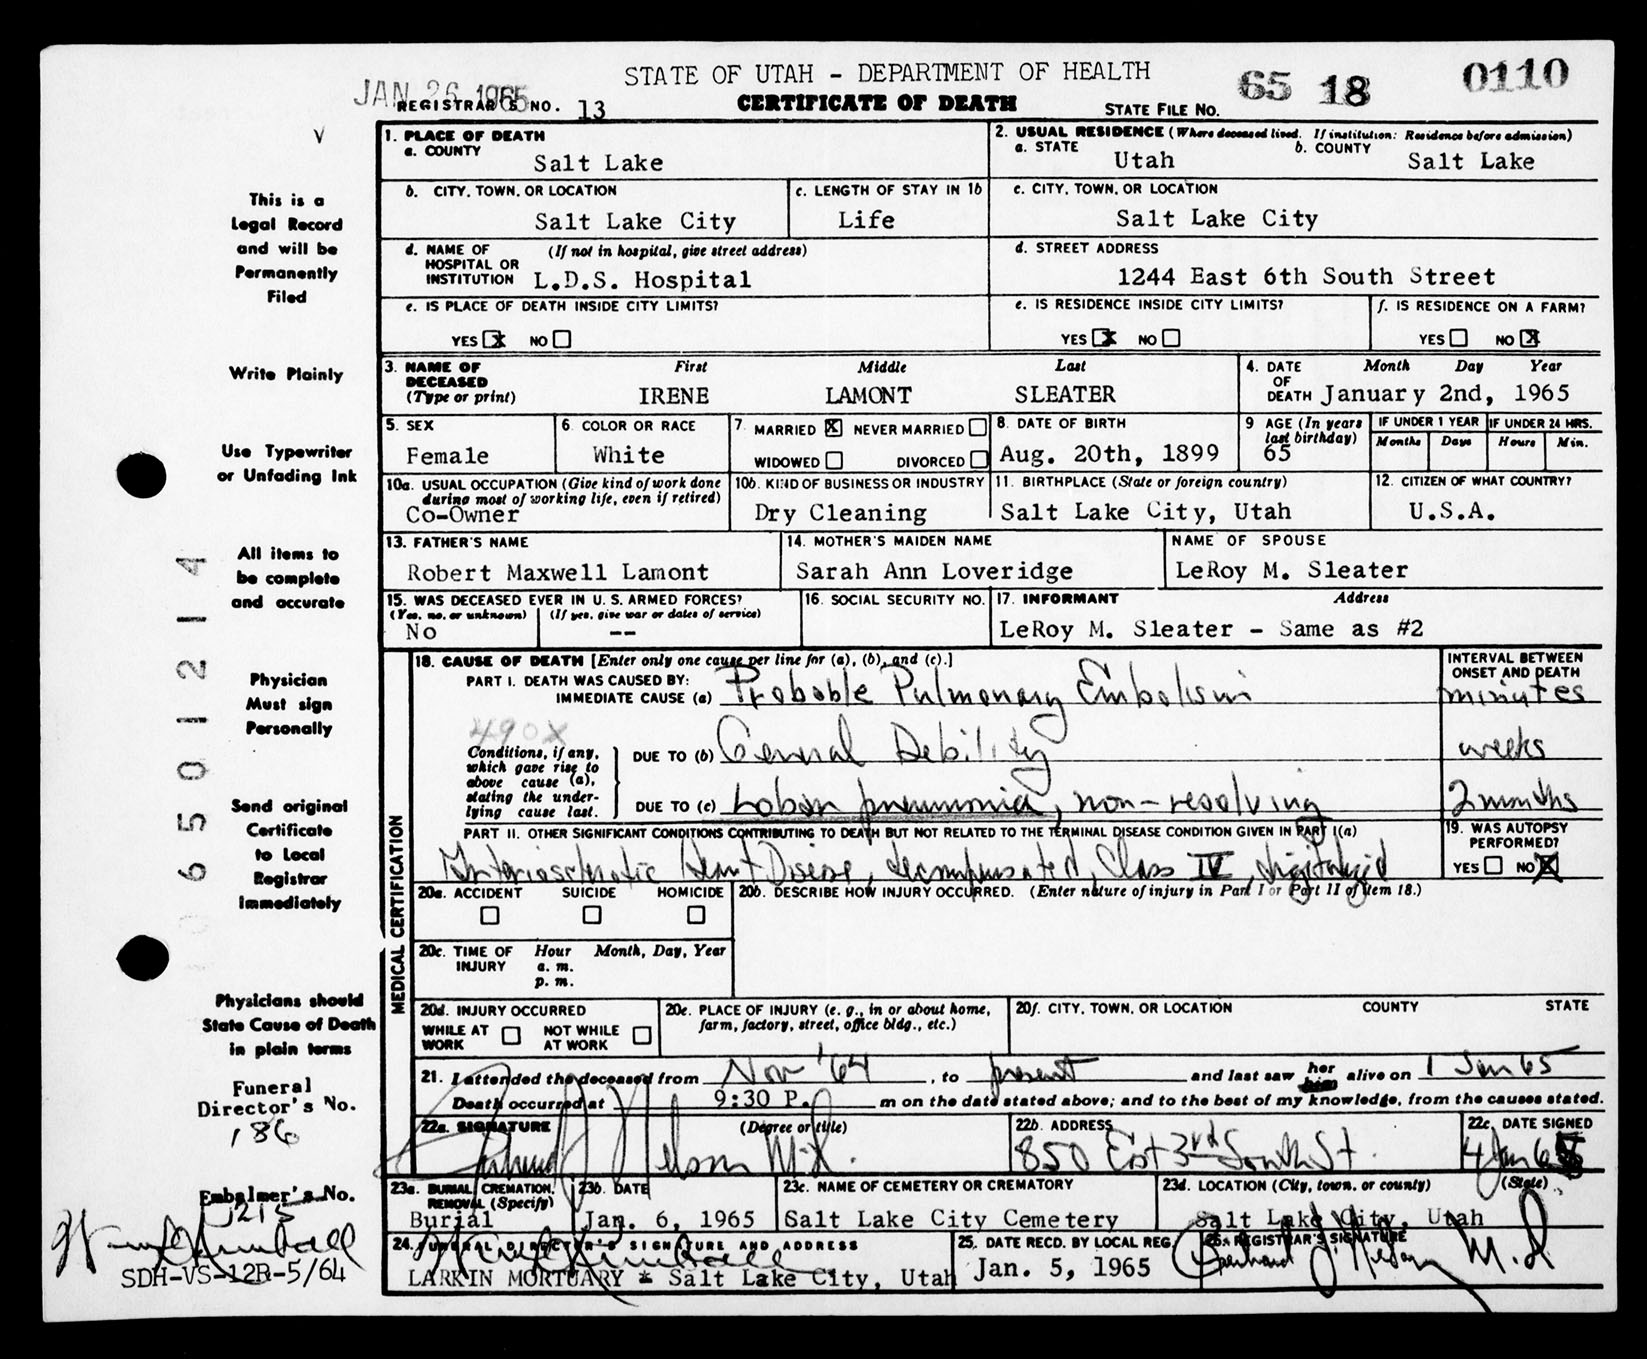 STATE OF UTAH - DEPARTMENT OF HEALTH
JAN 26 1965
REGISTRAR'S NO. 13
CERTIFICATE OF DEATH
STATE FILE NO. 65 18 0110
1. PLACE OF DEATH
a. COUNTY
Salt Lake
2. USUAL RESIDENCE (Where deceased lived. If institution: Residence before admission)
a. STATE Utah b. COUNTY Salt Lake
b. CITY, TOWN, OR LOCATION
Salt Lake City
c. LENGTH OF STAY IN 1b
Life
c. CITY, TOWN, OR LOCATION
Salt Lake City
d. NAME OF HOSPITAL OR INSTITUTION (If not in hospital, give street address)
L.D.S. Hospital
d. STREET ADDRESS
1244 East 6th South Street
e. IS PLACE OF DEATH INSIDE CITY LIMITS?
YES X NO
e. IS RESIDENCE INSIDE CITY LIMITS?
YES X NO
f. IS RESIDENCE ON A FARM?
YES NO X
3. NAME OF DECEASED (Type or print)
First Middle Last
IRENE LAMONT SLEATER
4. DATE OF DEATH Month Day Year
January 2nd, 1965
5. SEX
Female
6. COLOR OR RACE
White
7. MARRIED X NEVER MARRIED
WIDOWED DIVORCED
8. DATE OF BIRTH
Aug. 20th, 1899
9 AGE (In years last birthday)
65
IF UNDER 1 YEAR
Months Days
IF UNDER 24 HRS.
Hours Min.
10a. USUAL OCCUPATION (Give kind of work done during most of working life, even if retired)
Co-Owner
10b. KIND OF BUSINESS OR INDUSTRY
Dry Cleaning
11. BIRTHPLACE (State or foreign country)
Salt Lake City, Utah
12. CITIZEN OF WHAT COUNTRY?
U.S.A.
13. FATHER'S NAME
Robert Maxwell Lamont
14. MOTHER'S MAIDEN NAME
Sarah Ann Loveridge
NAME OF SPOUSE
LeRoy M. Sleater
15. WAS DECEASED EVER IN U. S. ARMED FORCES?
(Yes, no, or unknown) (If yes, give war or dates of service)
No --
16. SOCIAL SECURITY NO.
17. INFORMANT Address
LeRoy M. Sleater - Same as #2
MEDICAL CERTIFICATION
18. CAUSE OF DEATH [Enter only one cause per line for (a), (b), and (c).]
INTERVAL BETWEEN ONSET AND DEATH
PART I. DEATH WAS CAUSED BY:
IMMEDIATE CAUSE (a) Probable Pulmonary Embolism minutes
490X
Conditions, if any, which gave rise to above cause (a), stating the underlying cause last.
DUE TO (b) General Debility weeks
DUE TO (c) Lobar pneumonia, non-resolving 2 months
PART II. OTHER SIGNIFICANT CONDITIONS CONTRIBUTING TO DEATH BUT NOT RELATED TO THE TERMINAL DISEASE CONDITION GIVEN IN PART I(a)
Arteriosclerotic Heart Disease, decompensated, Class IV, digitalized
19. WAS AUTOPSY PERFORMED?
YES NO X
20a. ACCIDENT SUICIDE HOMICIDE
20b. DESCRIBE HOW INJURY OCCURRED. (Enter nature of injury in Part I or Part II of item 18.)
20c. TIME OF INJURY Hour Month, Day, Year
a. m.
p. m.
20d. INJURY OCCURRED
WHILE AT WORK NOT WHILE AT WORK
20e. PLACE OF INJURY (e. g., in or about home, farm, factory, street, office bldg., etc.)
20f. CITY, TOWN, OR LOCATION COUNTY STATE
21. I attended the deceased from Nov '64, to present and last saw her him alive on 1 Jan 65
Death occurred at 9:30 P. m on the date stated above; and to the best of my knowledge, from the causes stated.
22a. SIGNATURE (Degree or title)
Nelson M.D.
22b. ADDRESS
850 East 3rd South St.
22c. DATE SIGNED
4 Jan 65
23a. BURIAL, CREMATION, REMOVAL (Specify)
Burial
23b. DATE
Jan. 6, 1965
23c. NAME OF CEMETERY OR CREMATORY
Salt Lake City Cemetery
23d. LOCATION (City, town, or county) (State)
Salt Lake City, Utah
24. FUNERAL DIRECTOR'S SIGNATURE AND ADDRESS
LARKIN MORTUARY * Salt Lake City, Utah
25. DATE RECD. BY LOCAL REG.
Jan. 5, 1965
26. REGISTRAR'S SIGNATURE
M.D
This is a
Legal Record
and will be
Permanently
Filed
Write Plainly
Use Typewriter
or Unfading Ink
All items to
be complete
and accurate
Physician
Must sign
Personally
Send original
Certificate
to Local
Registrar
immediately
Physicians should
State Cause of Death
in plain terms
Funeral
Director's No.
186
Embalmer's No.
1215
SDH-VS-12R-5/64
065012114